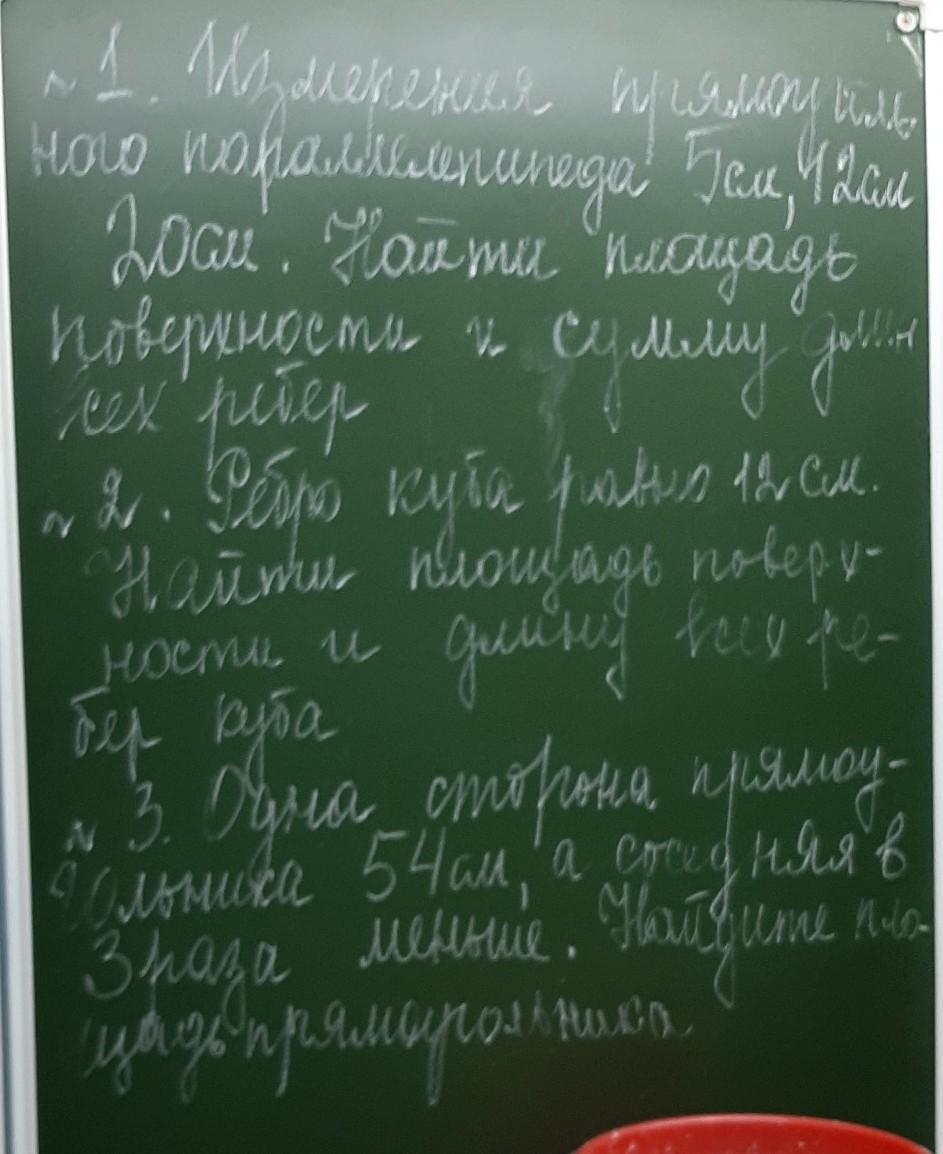 №1. Измерения прямоуголь
ного параллелепипеда 5см, 12см
20см. Найти площадь
поверхности и сумму длин
всех ребер
№2. Ребро куба равно 12 см.
Найти площадь поверх-
ности и длину всех ре-
бер куба
№3. Одна сторона прямоу-
гольника 54см, а соседняя в
3 раза меньше. Найдите пло-
щадь прямоугольника